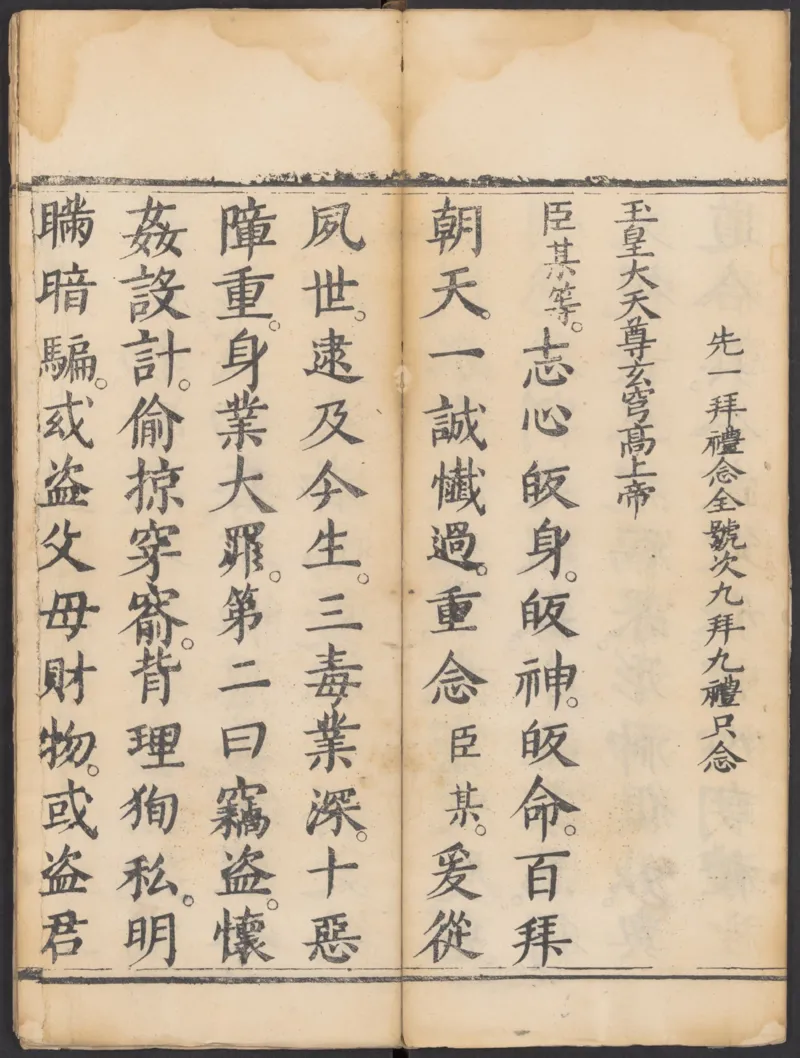 先一拜禮念全號次九拜九禮只念
玉皇大天尊玄穹高上帝
臣某等。志心皈身。皈神。皈命。百拜
朝天。一誠懺過。重念臣某。爰從
夙世。逮及今生。三毒業深。十惡
障重。身業大罪。第二曰竊盜。懷
姦設計。偷掠穿窬。背理狥私。明
瞞暗騙。或盜父母財物。或盜君